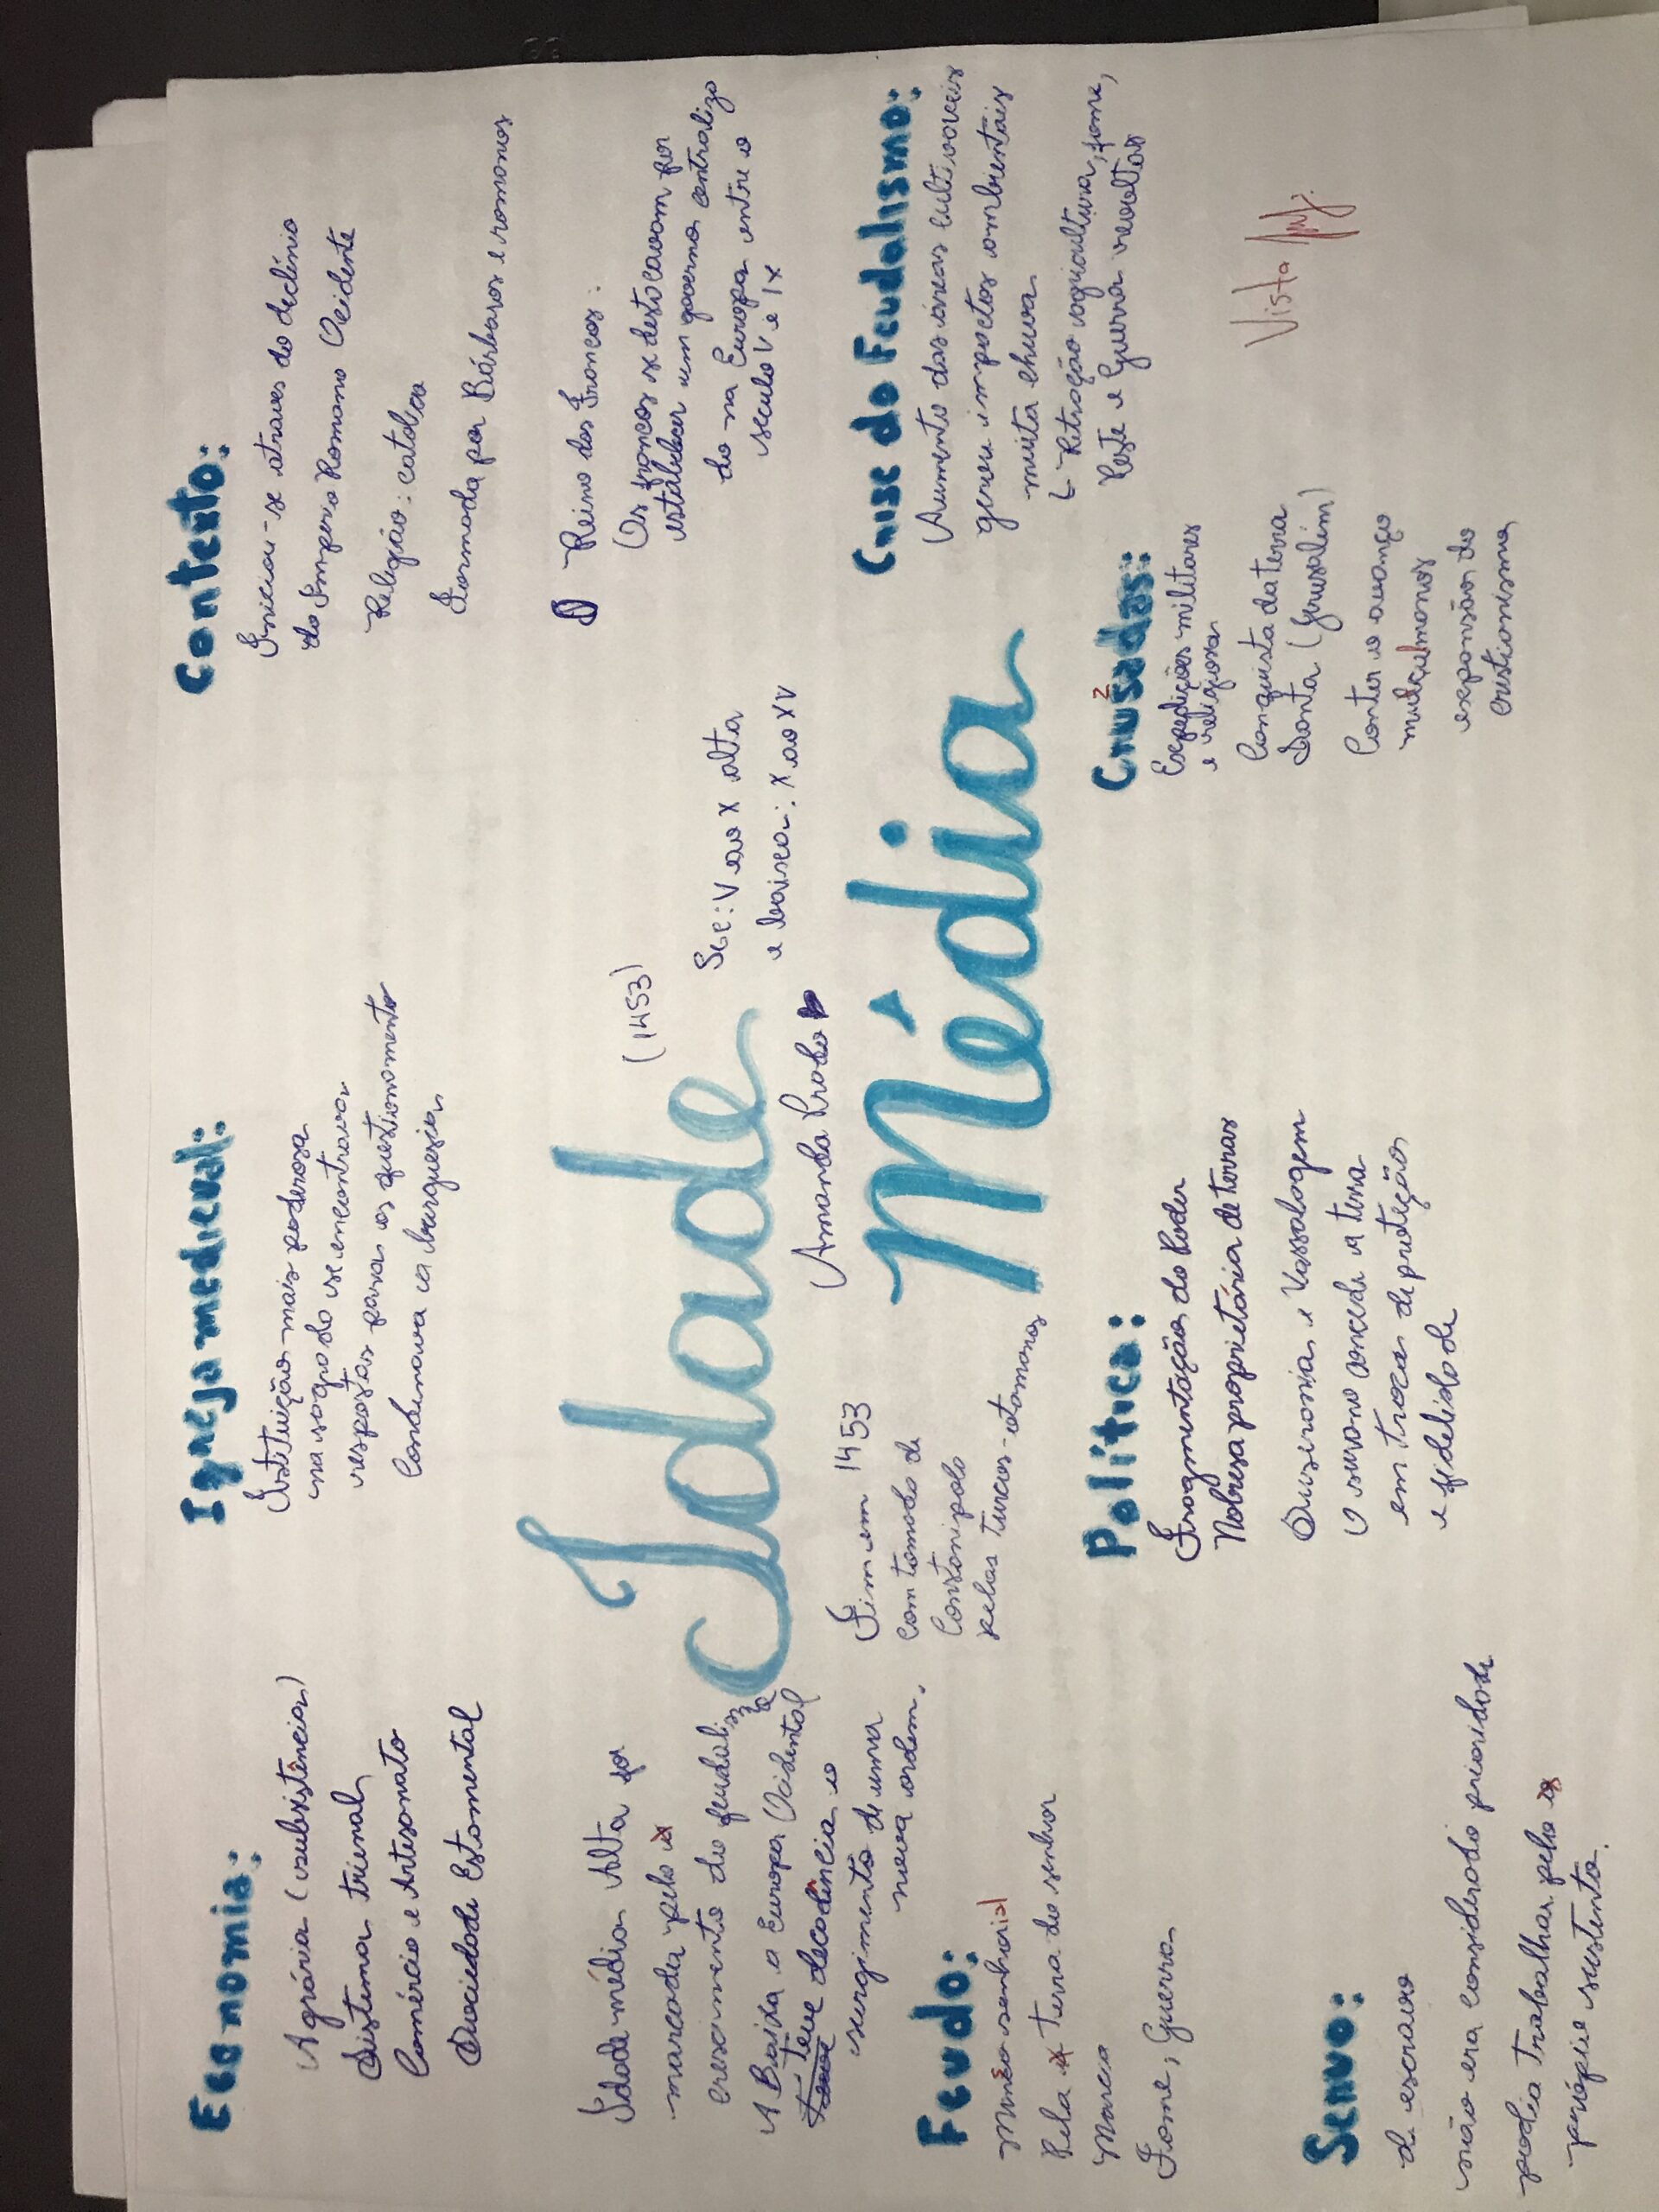 Economia:
Agrária (subsistência)
Sistema trienal
Comércio e Artesanato
Sociedade Estamental
Igreja medieval:
Instituição mais poderosa
na sagrado se encontrava
respostas para os questionamento
Condenava a burguesia
Contexto:
Iniciou-se atraves do declínio
do Imperio Romano Ocidente
Religião: catolica
Formada por Bárbaros e romanos
Reino dos Francos:
Os francos se destacavam por
estabelecer um governo centraliza
do na Europa entre o
seculo V e IX
Idade média Alta foi
marcada pelo
crescimento do feudalis
A Baixa a Europa Ocidental
teve decadência o
surgimento de uma
nova ordem.
Idade
Média
(1453)
Sec: V ao X alta
e baixa: X ao XV
Amanda Prado
Fim em 1453
com tomada de
Constanipola
pelas turcos-otomanos
Cruzadas:
Expedições militares
e religiosa
Conquista da terra
Santa (Jerusalém)
Conter o avanço
mulçulmanos
expansão do
cristianismo
Crise do Feudalismo:
Aumento das áreas cultivaveis
gerou impactos ambientais
muita chuva
↳ Retração agricultura, fome,
Peste e Guerra revoltas
Política:
Fragmentação do Poder
Nobreza proprietária de terras
Suserania e Vassalagem
O susano concede a terra
em troca de proteção
e fidelidade
Feudo:
Manso senhorial
Pela terra do senhor
Marca
Fome, Guerra
Servo:
de escravo
não era considerado prioridade
podia trabalhar pelo
própie sustento.
Visto